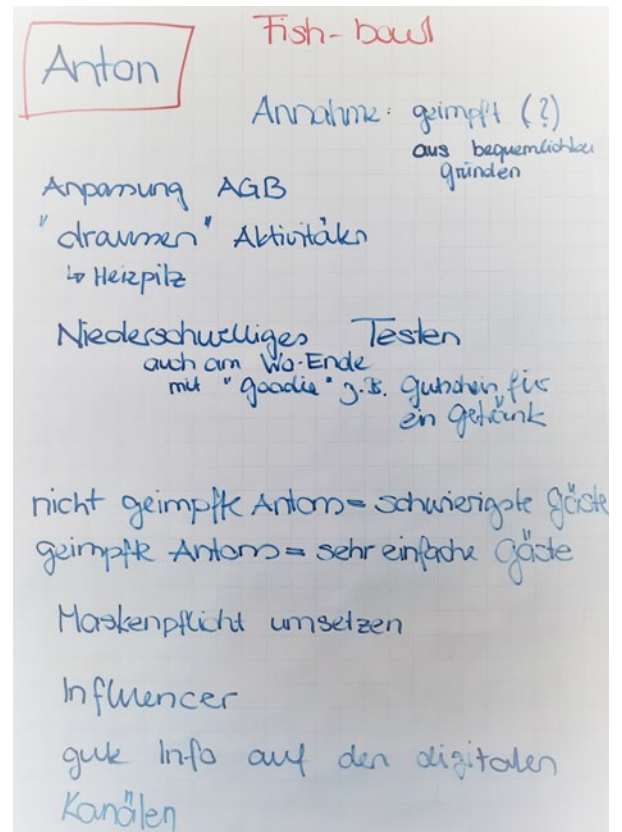 Fish-bowl
Anton
Annahme: geimpft (?)
aus bequemlichkei
gründen
Anpassung AGB
"draussen" Aktivitäten
↳ Heizpilz
Niederschwelliges Testen
auch am Wo-Ende
mit "goodie" z.B. Gutschein für
ein Getränk
nicht geimpfte Antons = schwierigste Gäste
geimpfte Antons = sehr einfache Gäste
Maskenpflicht umsetzen
Influencer
gute Info auf den digitalen
Kanälen